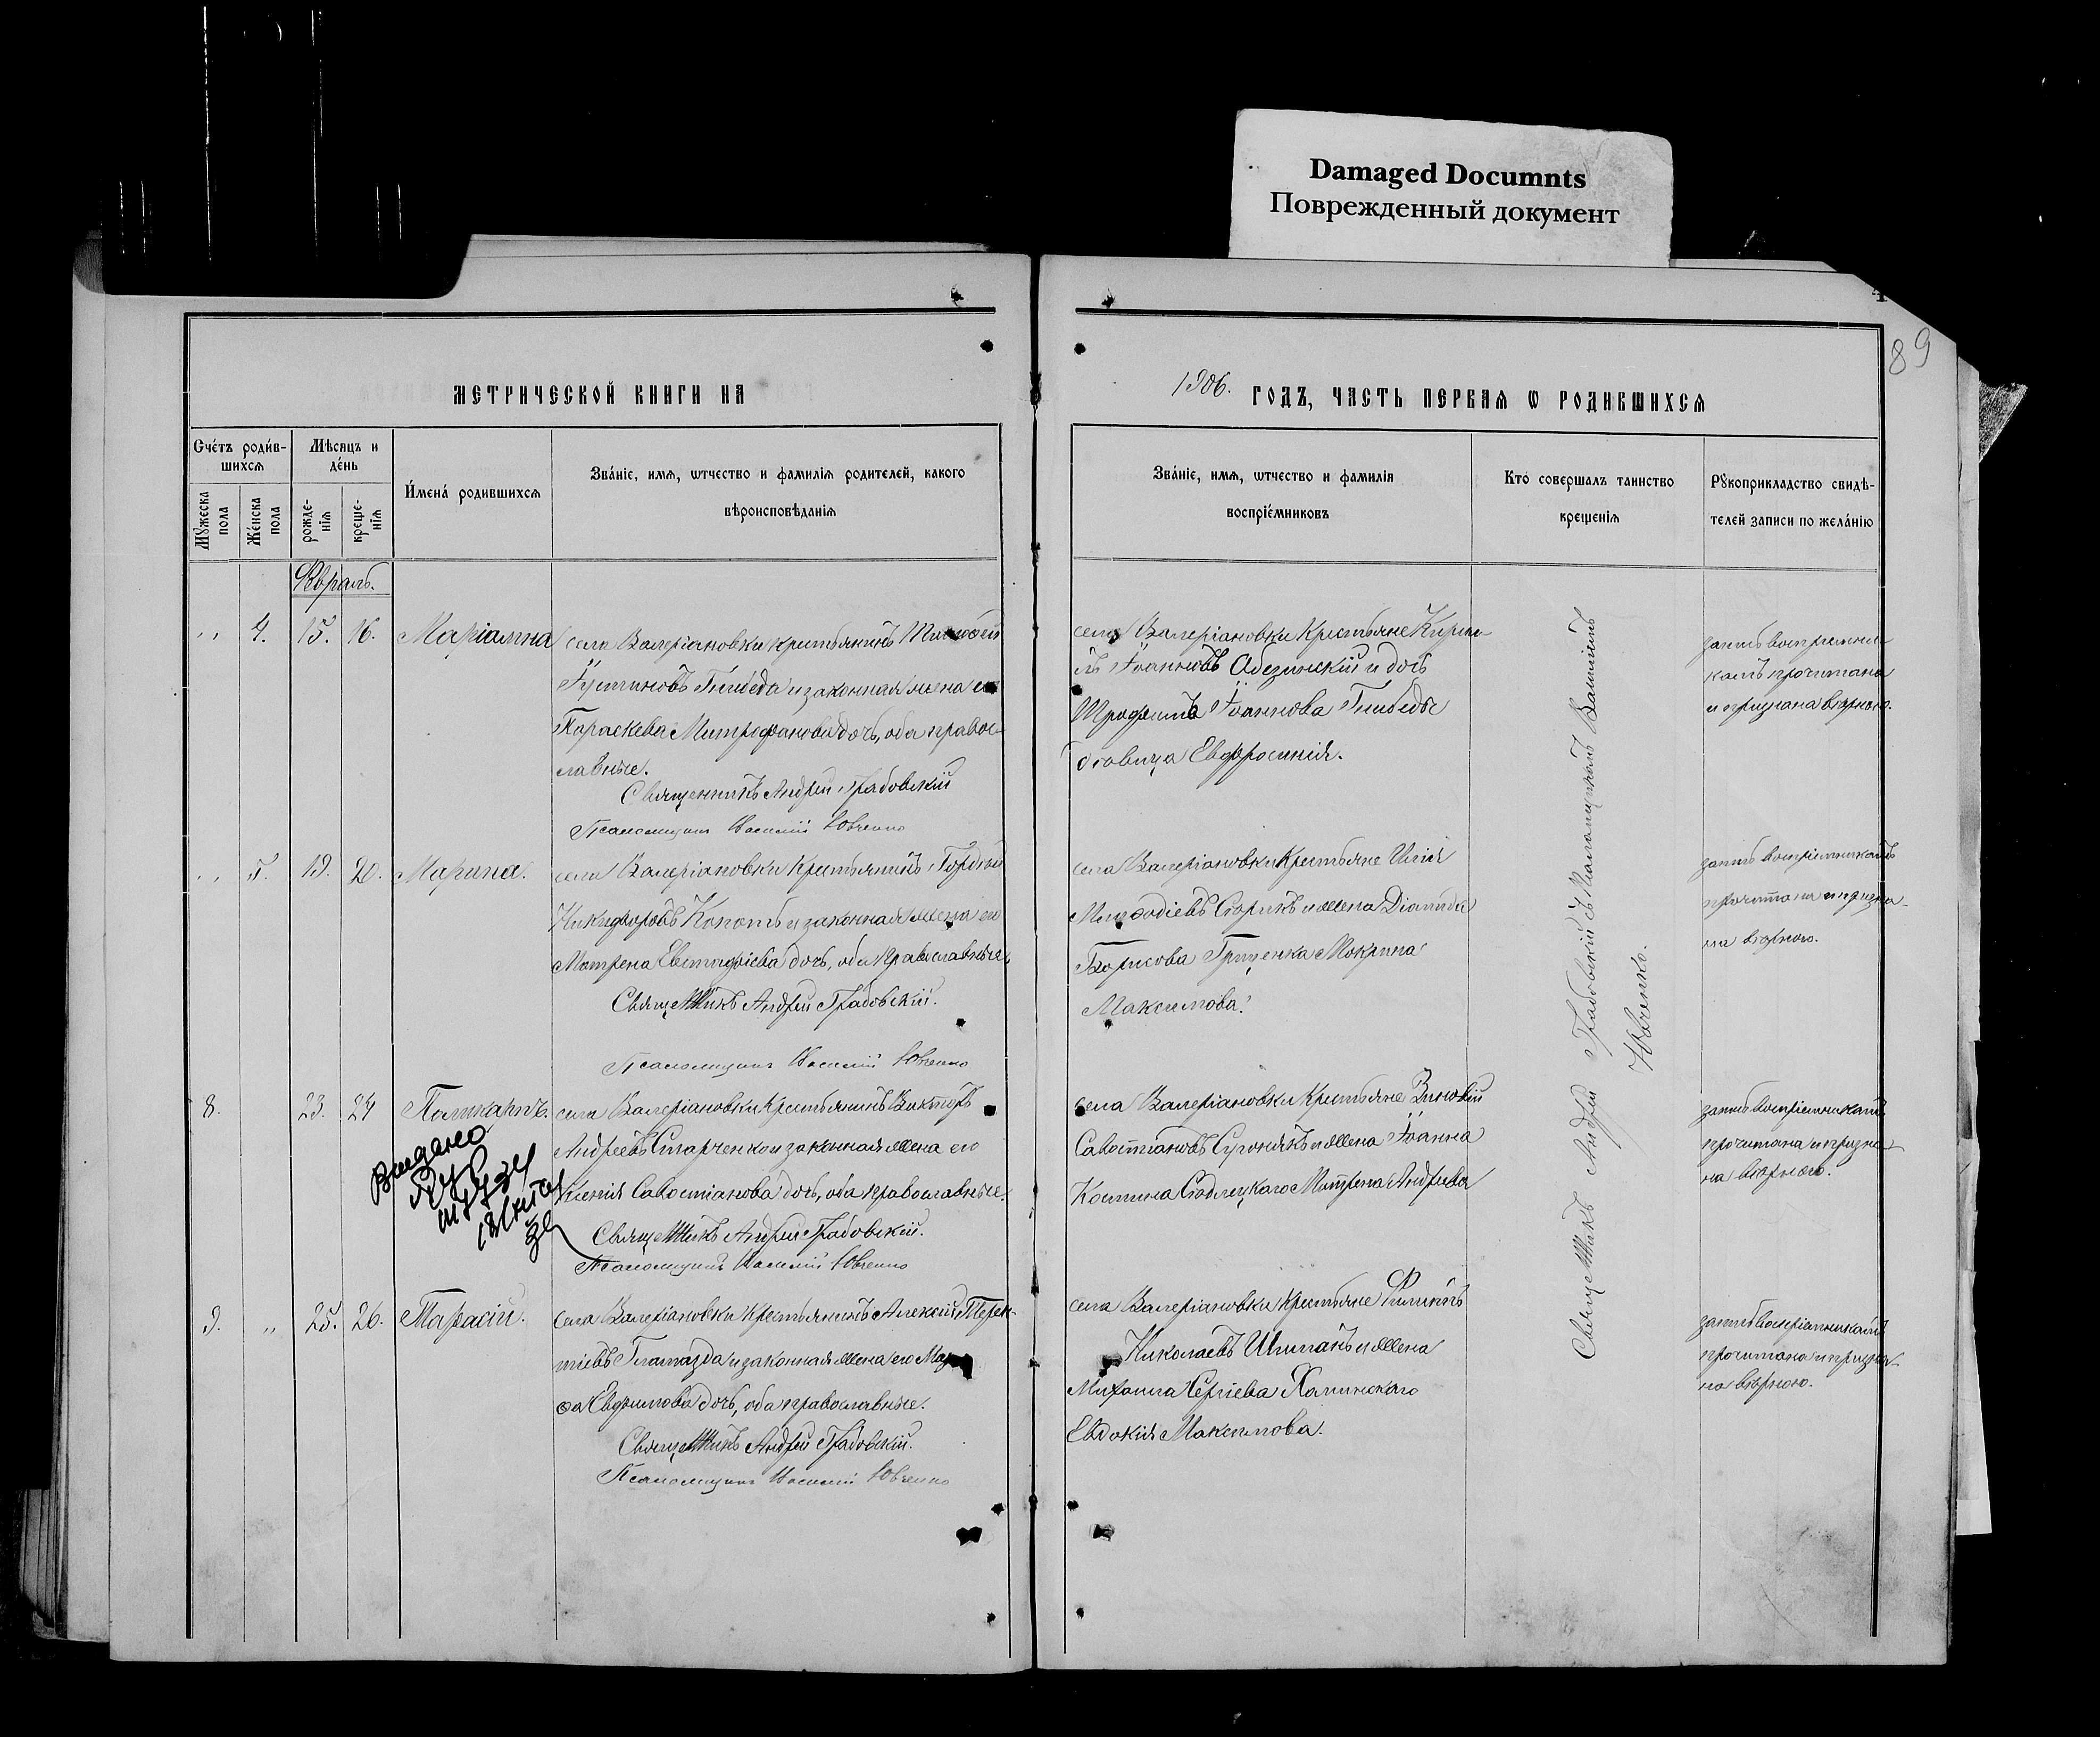 Damaged Documnts
Поврежденный документ
89
МЕТРИЧЕСКОЙ КНИГИ НА
1906. ГОДЪ, ЧАСТЬ ПЕРВАЯ Ѡ РОДИВШИХСЯ
Счетъ родив-
шихся
Мѣсяцъ и
день
Имена родившихся
Званіе, имя, ѡтчество и фамилія родителей, какого
вѣроисповѣданія
Мꙋжеска
пола
Женска
пола
рожде-
нія
креще-
нія
Званіе, имя, ѡтчество и фамилія
воспріемниковъ
Кто совершалъ таинство
крещенія
Рꙋкоприкладство свидѣ-
телей записи по желанію
Февраль.
4. 15. 16. Маріамна
села Валеріановки крестьянинъ
Іустиновъ и законная жена его
Параскева Митрофанова дочь, оба правос-
лавные.
Священникъ Андрей Грабовскій
Псаломщикъ Василій Ювченко
села Валеріановки Крестьяне Кирил-
лъ Іоанновъ и дочь
Трофима Іоаннова
дѣвица Евфросинія.
запись воспріемни-
камъ прочитана
и признана вѣрною.
5. 19. 20. Марина.
села Валеріановки Крестьянинъ Гордѣй
Никифоровъ Копоть и законная жена его
Матрена Евстифіева дочь, оба Православные.
Священникъ Андрей Грабовскій.
Псаломщикъ Василій Ювченко
села Валеріановки Крестьяне Илія
Меѳодіевъ и жена Діамида
Борисова Гриценка Мокрина
Максимова.
запись воспріемникамъ
прочитана и призна-
на вѣрною.
8. 23. 24 Поликарпъ.
села Валеріановки Крестьянинъ Викторъ
Андреевъ Старченко и законная жена его
Ксенія Савостіанова дочь, оба православные.
Священникъ Андрей Грабовскій.
Псаломщикъ Василій Ювченко
Видано
села Валеріановки Крестьяне Зиновій
Савостіановъ и жена Іоанна
Матрена Андреева
запись воспріемникамъ
прочитана и призна-
на вѣрною.
9. 25. 26. Тарасій.
села Валеріановки Крестьянинъ Алексій Терен-
тіевъ и законная жена его Мар
ѳа Евфимова дочь, оба православные.
Священникъ Андрей Грабовскій.
Псаломщикъ Василій Ювченко
села Валеріановки Крестьяне Филиппъ
Николаевъ и жена
Михаила Сергіева
Евдокія Максимова.
запись воспріемникамъ
прочитана и призна-
на вѣрною.
Священникъ Андрей Грабовскій съ Псаломщикомъ Василіемъ
Ювченко.